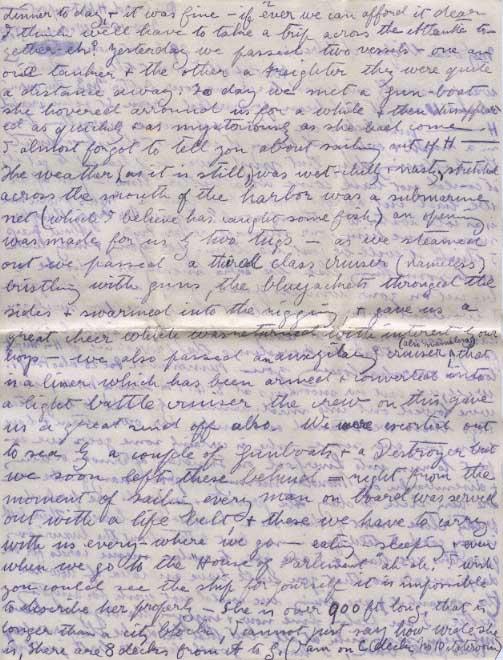 dinner to day, it was fine - if ever we can afford it dear
I think we'll have to take a trip across the Atlantic to-
gether eh? Yesterday we passed two vessels - one an
oil tanker + the other a freighter they were quite
a distance away; to day we met a gun-boat
she hovered arround us for a while + then disappear
ed as quickly + as mysteriously as she had come
I almost forgot to tell you about sailing out of H
The weather, (as it is still,) was wet - chilly + nasty, stretched
across the mouth of the harbor was a submarine
net (which I believe has caught some fish) an opening
was made for us by two tugs - as we steamed
out we passed a third class cruiser (nameless)
bristling with guns, the bluejackets thronged the
sides + swarmed into the rigging, + gave us a
great cheer which was returned with interest by our
boys - we also passed an auxiliary cruiser, (also nameless) that
is a liner which has been armed + converted into
a light battle cruiser the crew on this gave
us a great send off also. We were escorted out
to sea by a couple of Gunboats + a Destroyer but
we soon left these behind - right from the
moment of sailing every man on board was served
out with a life belt + these we have to carry
with us every-where we go - eating, sleeping + even
when we go to the "House of Parliament" eh, eh, I wish
you could see the ship for yourself it is impossible
to describe her properly - She is over 900 ft long that is
longer than a city block, I cannot just say how wide she
is, There are 8 decks from A to G, (I am on C deck, No 10